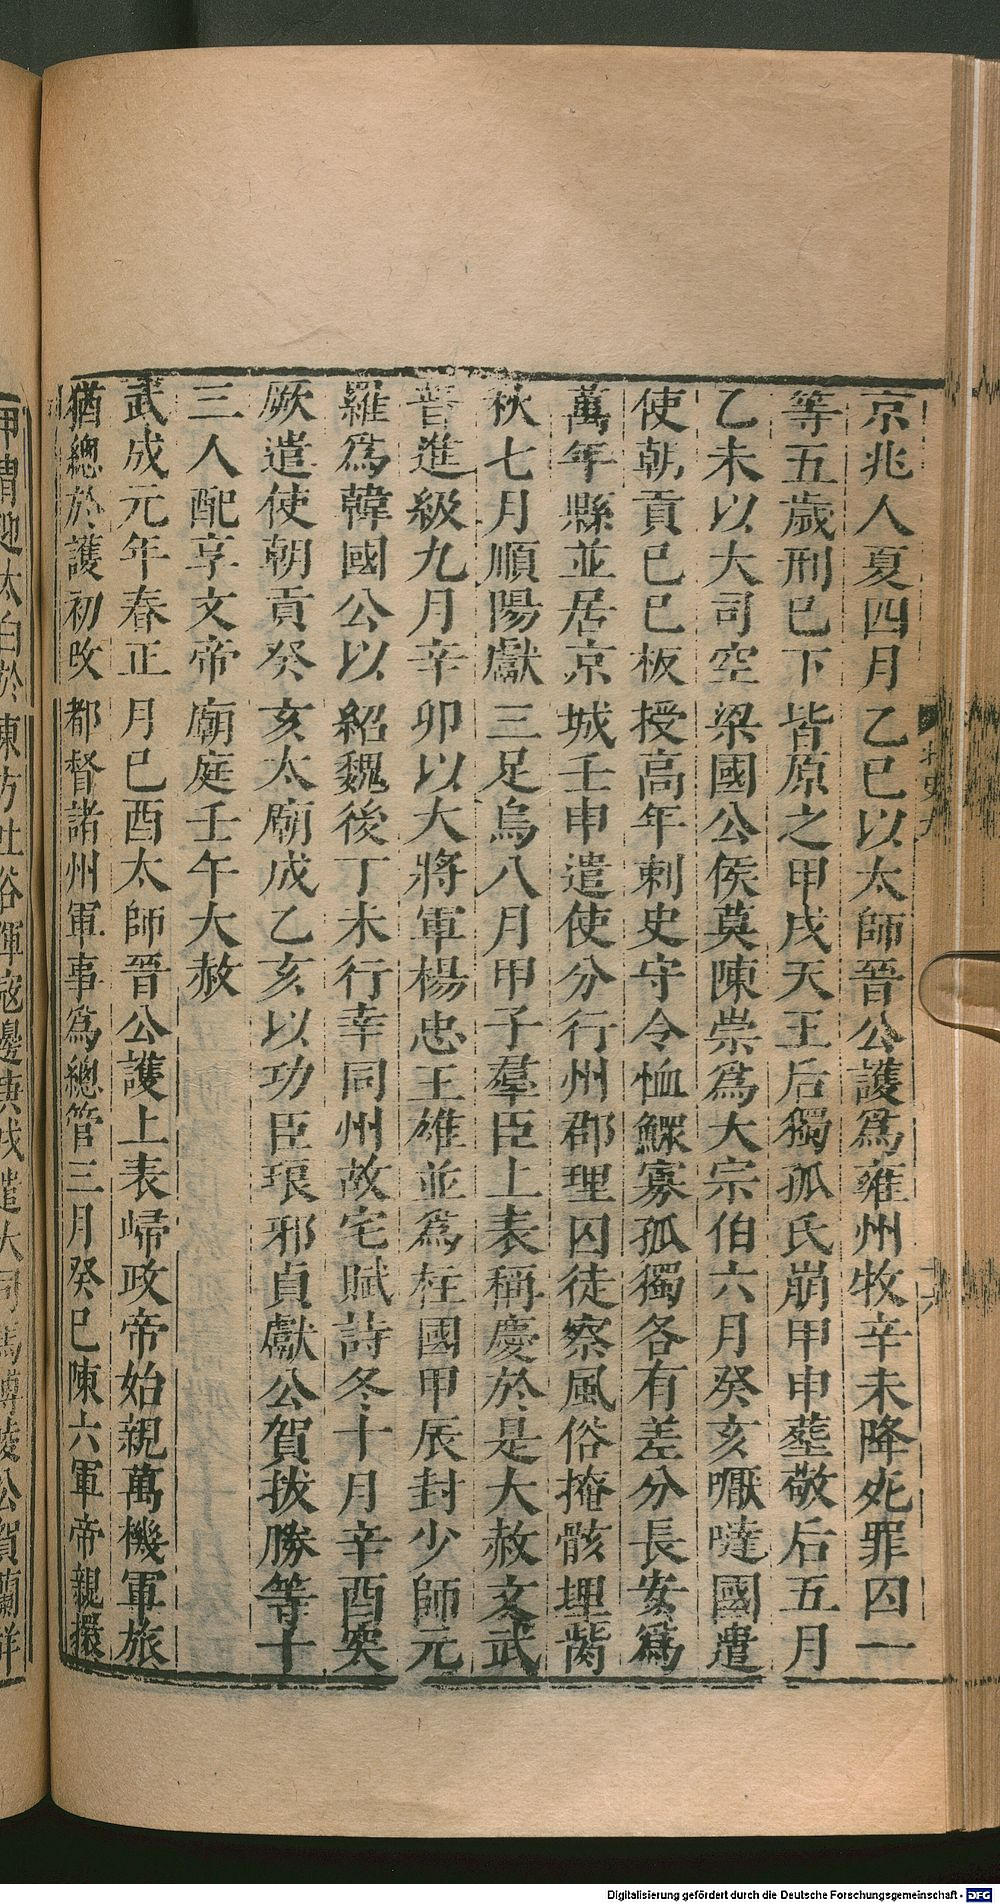 京兆人夏四月乙巳以太師晉公護爲雍州牧辛未降死罪囚一
等五歲刑巳下皆原之甲戌天王后獨孤氏崩甲申塟敬后五月
乙未以大司空梁國公侯莫陳崇爲大宗伯六月癸亥嚈噠國遣
使朝貢巳巳板授高年刺史守令恤鰥寡孤獨各有差分長安爲
萬年縣並居京城壬申遣使分行州郡理囚徒察風俗掩骸埋胔
秋七月順陽獻三足烏八月甲子羣臣上表稱慶於是大赦文武
普進級九月辛卯以大將軍楊忠王雄並爲柱國甲辰封少師元
羅爲韓國公以紹魏後丁未行幸同州故宅賦詩冬十月辛酉突
厥遣使朝貢癸亥太廟成乙亥以功臣琅邪貞獻公賀拔勝等十
三人配享文帝廟庭壬午大赦
武成元年春正月巳酉太師晉公護上表歸政帝始親萬機軍旅
猶總於護初改都督諸州軍事爲總管三月癸巳陳六軍帝親擐
北史九
十六
甲冑迎太白於東方吐谷渾寇邊庚戌遣大司馬博陵公賀蘭祥
Digitalisierung gefördert durch die Deutsche Forschungsgemeinschaft - DFG